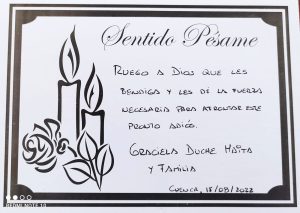 Sentido Pésame
Ruego a Dios que les
bendiga y les de la fuerza
necesaria para afrontar este
pronto adiós.
Graciela Duche Maita
y Familia
Cuenca, 15/08/2022
REDMI NOTE 10